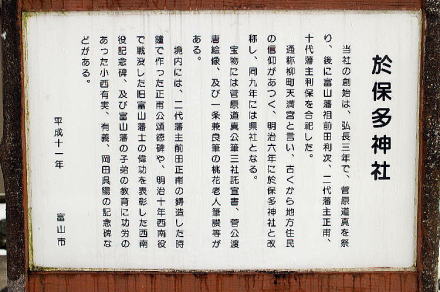 於保多神社
当社の創始は、弘長三年で、菅原道真を祭
り、後に富山藩祖前田利次、二代藩主正甫、
十代藩主利保を合祀した。
通称柳町天満宮と言い、古くから地方住民
の信仰があつく、明治六年に於保多神社と改
称し、同九年には県社となる。
宝物には菅原道真公筆三社託宣書、菅公渡
唐絵像、及び一条兼良筆の桃花老人筆謄等が
ある。
境内には、二代藩主前田正甫の鋳造した時
鐘で作った正甫公頌徳碑や、明治十年西南役
で戦没した旧富山藩士の偉功を表彰した西南
役記念碑、及び富山藩の子弟の教育に功労の
あった小西有実、有義、岡田呉陽の記念碑な
どがある。
平成十一年
富山市